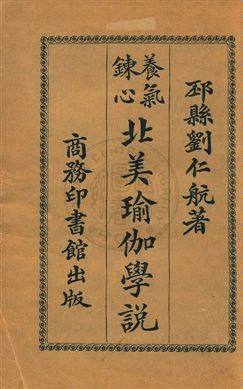 邳縣劉仁航著
養氣
鍊心
北美瑜伽學說
商務印書館出版